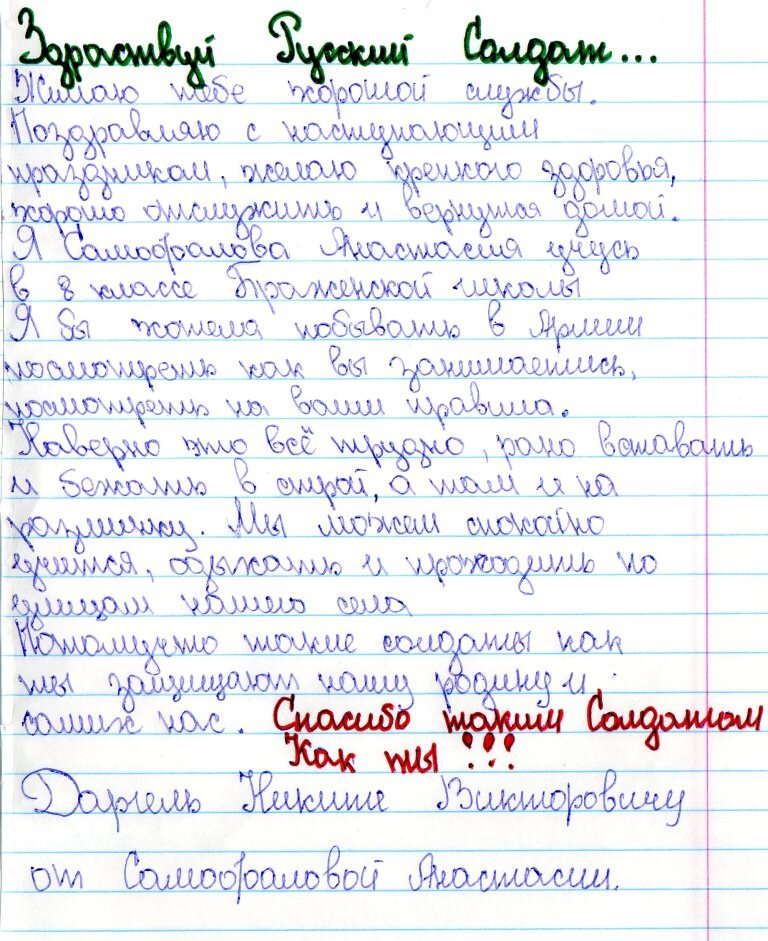 Здраствуй Русский Солдат...
Желаю тебе хорошой службы.
Поздравляю с наступающим
праздником, желаю крепкого здоровья,
хорошо отслужить и вернутся домой.
Я Самофалова Анастасия учусь
в 8 классе Браженской школы
Я бы хотела побывать в Армии
посмотреть как вы занимаетись,
посмотреть на ваши правила.
Наверно это всё трудно, рано вставать
и бежать в строй, а там и на
разминку. Мы можем спокойно
учится, одыхать и проходить по
улицам нашего села
Потомучто такие солдаты как
ты защищают нашу родину и
самих нас. Спасибо таким Солдатам
Как ты !!!
Даргель Никите Викторовичу
от Самофаловой Анастасии.